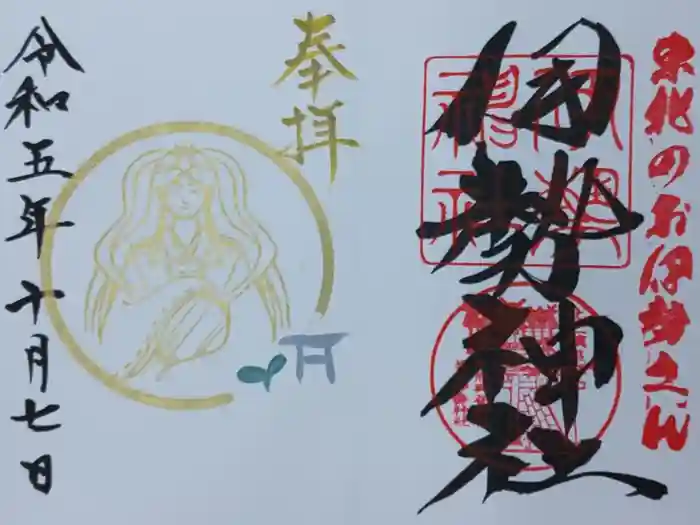 東北のお伊勢さん
伊勢神社
奉拝
令和五年十月七日